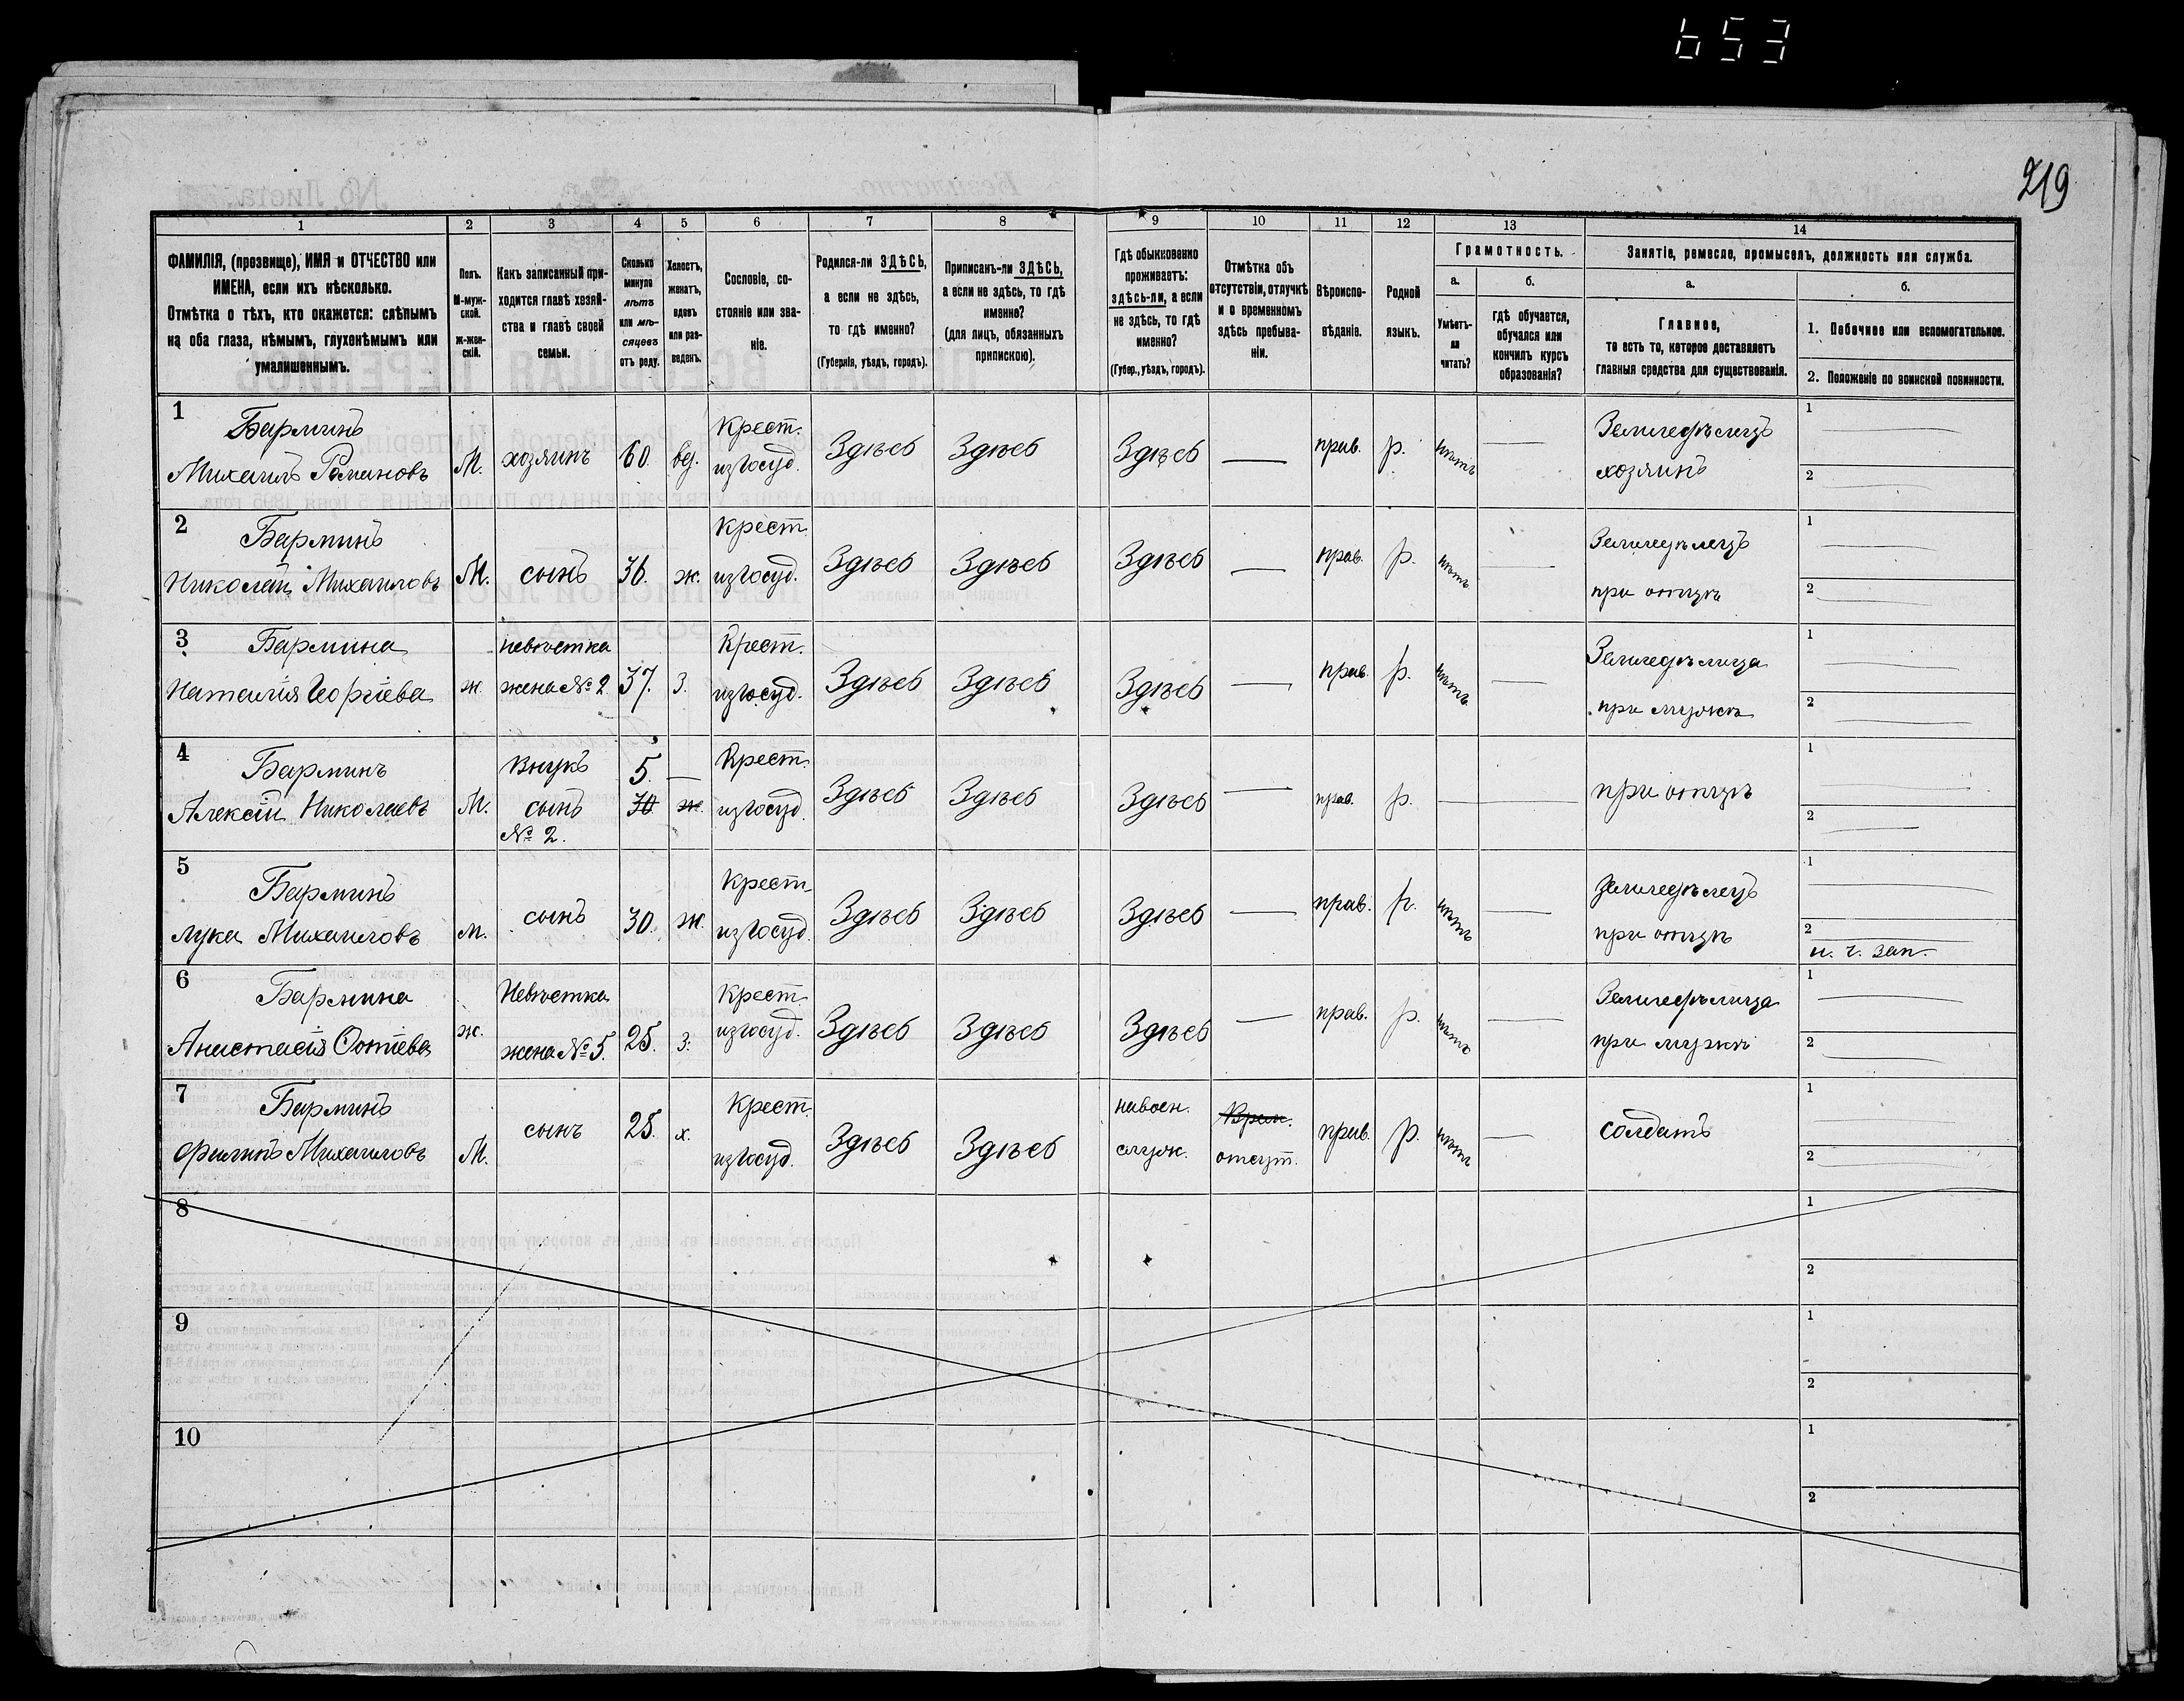 653
219
1
2
3
4
5
6
7
8
9
10
11
12
13
14
ФАМИЛІЯ, (прозвище), ИМЯ и ОТЧЕСТВО или
ИМЕНА, если ихъ нѣсколько.
Отмѣтка о тѣхъ, кто окажется: слѣпымъ
на оба глаза, нѣмымъ, глухонѣмымъ или
умалишеннымъ.
Полъ.
М-муж-
ской.
Ж-жен-
скій.
Какъ записанный при-
ходится главѣ хозяй-
ства и главѣ своей
семьи.
Сколько
минуло
лѣтъ
или мѣ-
сяцевъ
отъ роду.
Холостъ,
женатъ,
вдовъ
или раз-
веденъ.
Сословіе, со-
стояніе или зва-
ніе.
Родился-ли ЗДѢСЬ,
а если не здѣсь,
то гдѣ именно?
(Губернія, уѣздъ, городъ).
Приписанъ-ли ЗДѢСЬ,
а если не здѣсь, то гдѣ
именно?
(для лицъ, обязанныхъ
припискою).
Гдѣ обыкновенно
проживаетъ:
здѣсь-ли, а если
не здѣсь, то гдѣ
именно?
(Губер., уѣздъ, городъ).
Отмѣтка объ
отсутствіи, отлучкѣ
и о временномъ
здѣсь пребыва-
ніи.
Вѣроиспо-
вѣданіе.
Родной
языкъ.
Грамотность.
а.
Умѣетъ-
ли
читать?
б.
гдѣ обучается,
обучался или
кончилъ курсъ
образованія?
Занятіе, ремесло, промыселъ, должность или служба.
а.
Главное,
то есть то, которое доставляетъ
главныя средства для существованія.
б.
1. Побочное или вспомогательное.
2. Положеніе по воинской повинности.
1
Барминъ
Михаилъ Романовъ
М.
хозяинъ
60.
вд.
Крест.
изъ госуд.
Здѣсь
Здѣсь
Здѣсь
—
прав.
р.
нѣтъ
—
Земледѣлецъ
хозяинъ
1 —
2 —
2
Барминъ
Николай Михаиловъ
М.
сынъ
36.
ж.
Крест.
изъ госуд.
Здѣсь
Здѣсь
Здѣсь
—
прав.
р.
нѣтъ
—
Земледѣлецъ
при отцѣ
1 —
2 —
3
Бармина
Наталія Георгіева
ж.
невѣстка
жена № 2
37.
з.
Крест.
изъ госуд.
Здѣсь
Здѣсь
Здѣсь
—
прав.
р.
нѣтъ
—
Земледѣлица
при мужѣ
1 —
2 —
4
Барминъ
Алексѣй Николаевъ
М.
внукъ
сынъ
№ 2.
5.
30
—
ж.
Крест.
изъ госуд.
Здѣсь
Здѣсь
Здѣсь
—
прав.
р.
—
при отцѣ
1 —
2 —
5
Барминъ
Лука Михаиловъ
м.
сынъ
30.
ж.
Крест.
изъ госуд.
Здѣсь
Здѣсь
Здѣсь
—
прав.
р.
нѣтъ
—
Земледѣлецъ
при отцѣ
1 —
2 —
н. ч. зап.
6
Бармина
Анастасія Фотіева
ж.
Невѣстка
жена № 5.
25.
з.
Крест.
изъ госуд.
Здѣсь
Здѣсь
Здѣсь
—
прав.
р.
нѣтъ
—
Земледѣлица
при мужѣ
1 —
2 —
7
Барминъ
Филипъ Михаиловъ
М.
сынъ
25.
х.
Крест.
изъ госуд.
Здѣсь
Здѣсь
на воен.
служ.
Врем.
отсут.
прав.
р.
нѣтъ
—
солдатъ
1 —
2 —
8
1
2
9
1
2
10
1
2